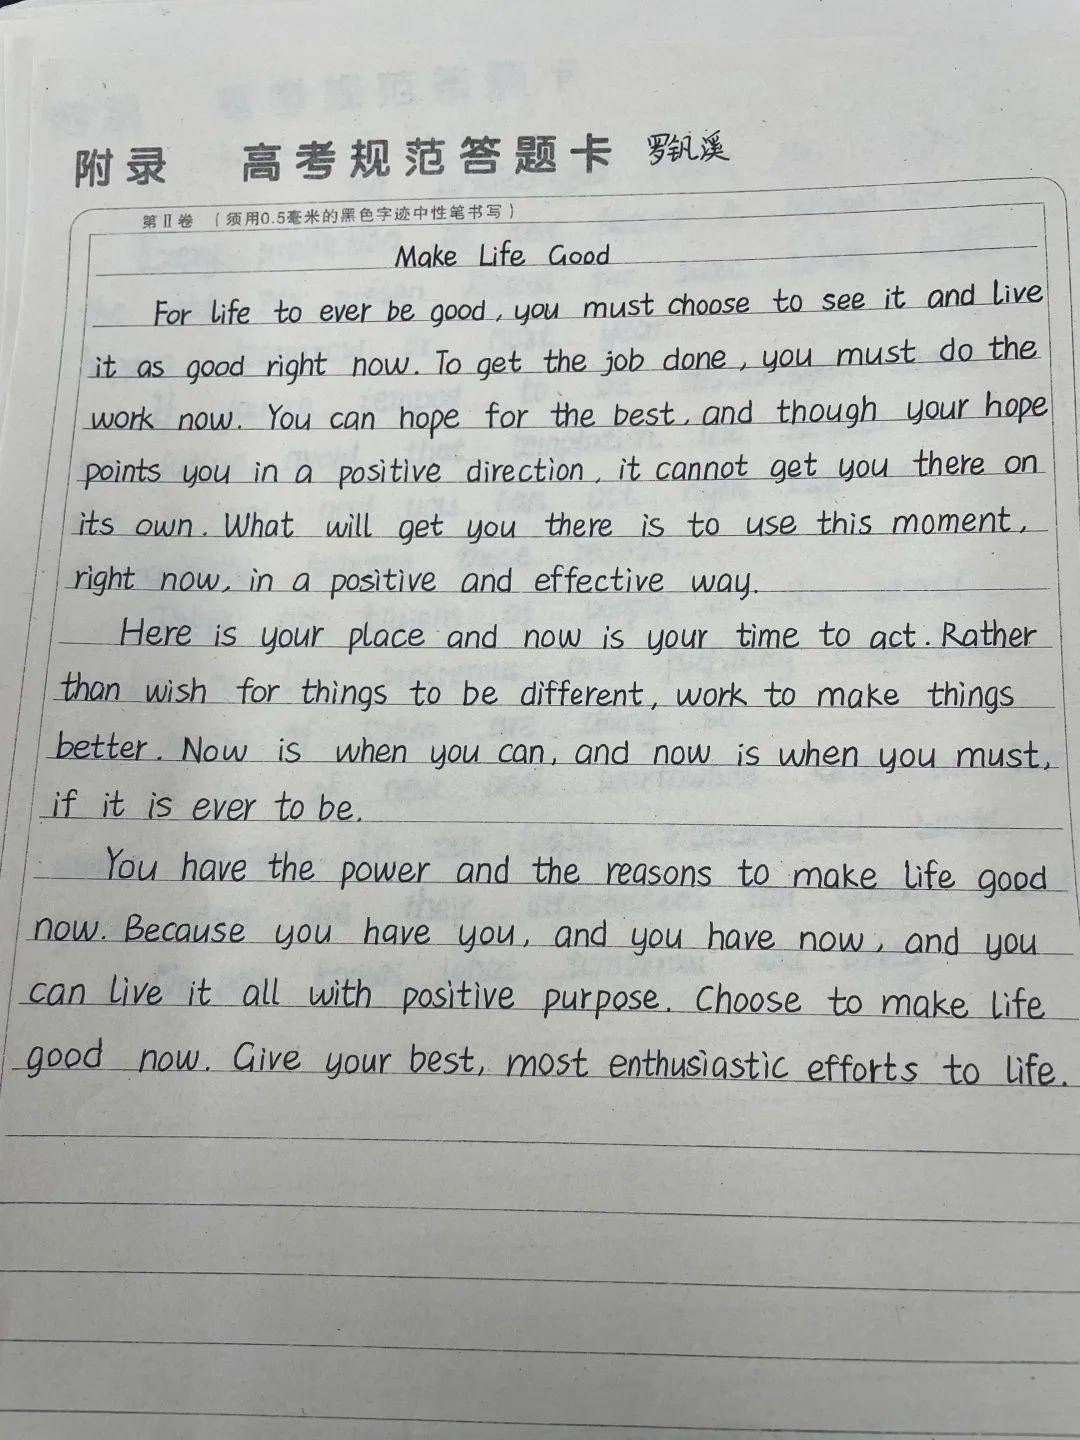 附录 高考规范答题卡 罗钒溪
第Ⅱ卷 （须用0.5毫米的黑色字迹中性笔书写）
Make Life Good
For life to ever be good, you must choose to see it and live
it as good right now. To get the job done, you must do the
work now. You can hope for the best, and though your hope
points you in a positive direction, it cannot get you there on
its own. What will get you there is to use this moment,
right now, in a positive and effective way.
Here is your place and now is your time to act. Rather
than wish for things to be different, work to make things
better. Now is when you can, and now is when you must,
if it is ever to be.
You have the power and the reasons to make life good
now. Because you have you, and you have now, and you
can live it all with positive purpose. Choose to make life
good now. Give your best, most enthusiastic efforts to life.